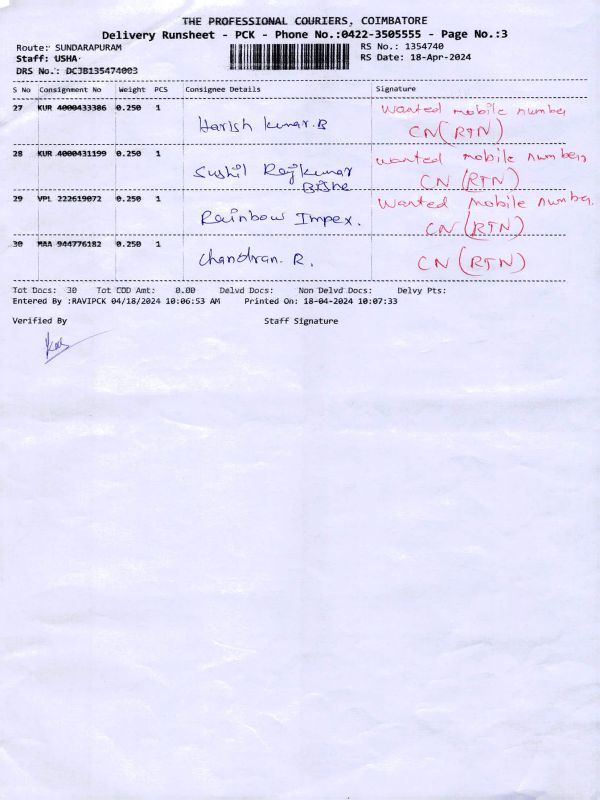 THE PROFESSIONAL COURIERS, COIMBATORE
Delivery Runsheet - PCK - Phone No.:0422-3505555 - Page No.:3
Route: SUNDARAPURAM RS No.: 1354740
Staff: USHA RS Date: 18-Apr-2024
DRS No.: DCJB135474003
S No Consignment No Weight PCS Consignee Details Signature
27 KUR 4000433386 0.250 1 Harish kumar.B wanted mobile number
CN (RTN)
28 KUR 4000431199 0.250 1 Sushil Rajkumar wanted mobile number
CN (RTN)
29 VPL 222619072 0.250 1 Rainbow Impex. wanted mobile number
CN (RTN)
30 MAA 944776182 0.250 1 Chandran. R. CN (RTN)
Tot Docs: 30 Tot COD Amt: 0.00 Delvd Docs: Non Delvd Docs: Delvy Pts:
Entered By :RAVIPCK 04/18/2024 10:06:53 AM Printed On: 18-04-2024 10:07:33
Verified By Staff Signature